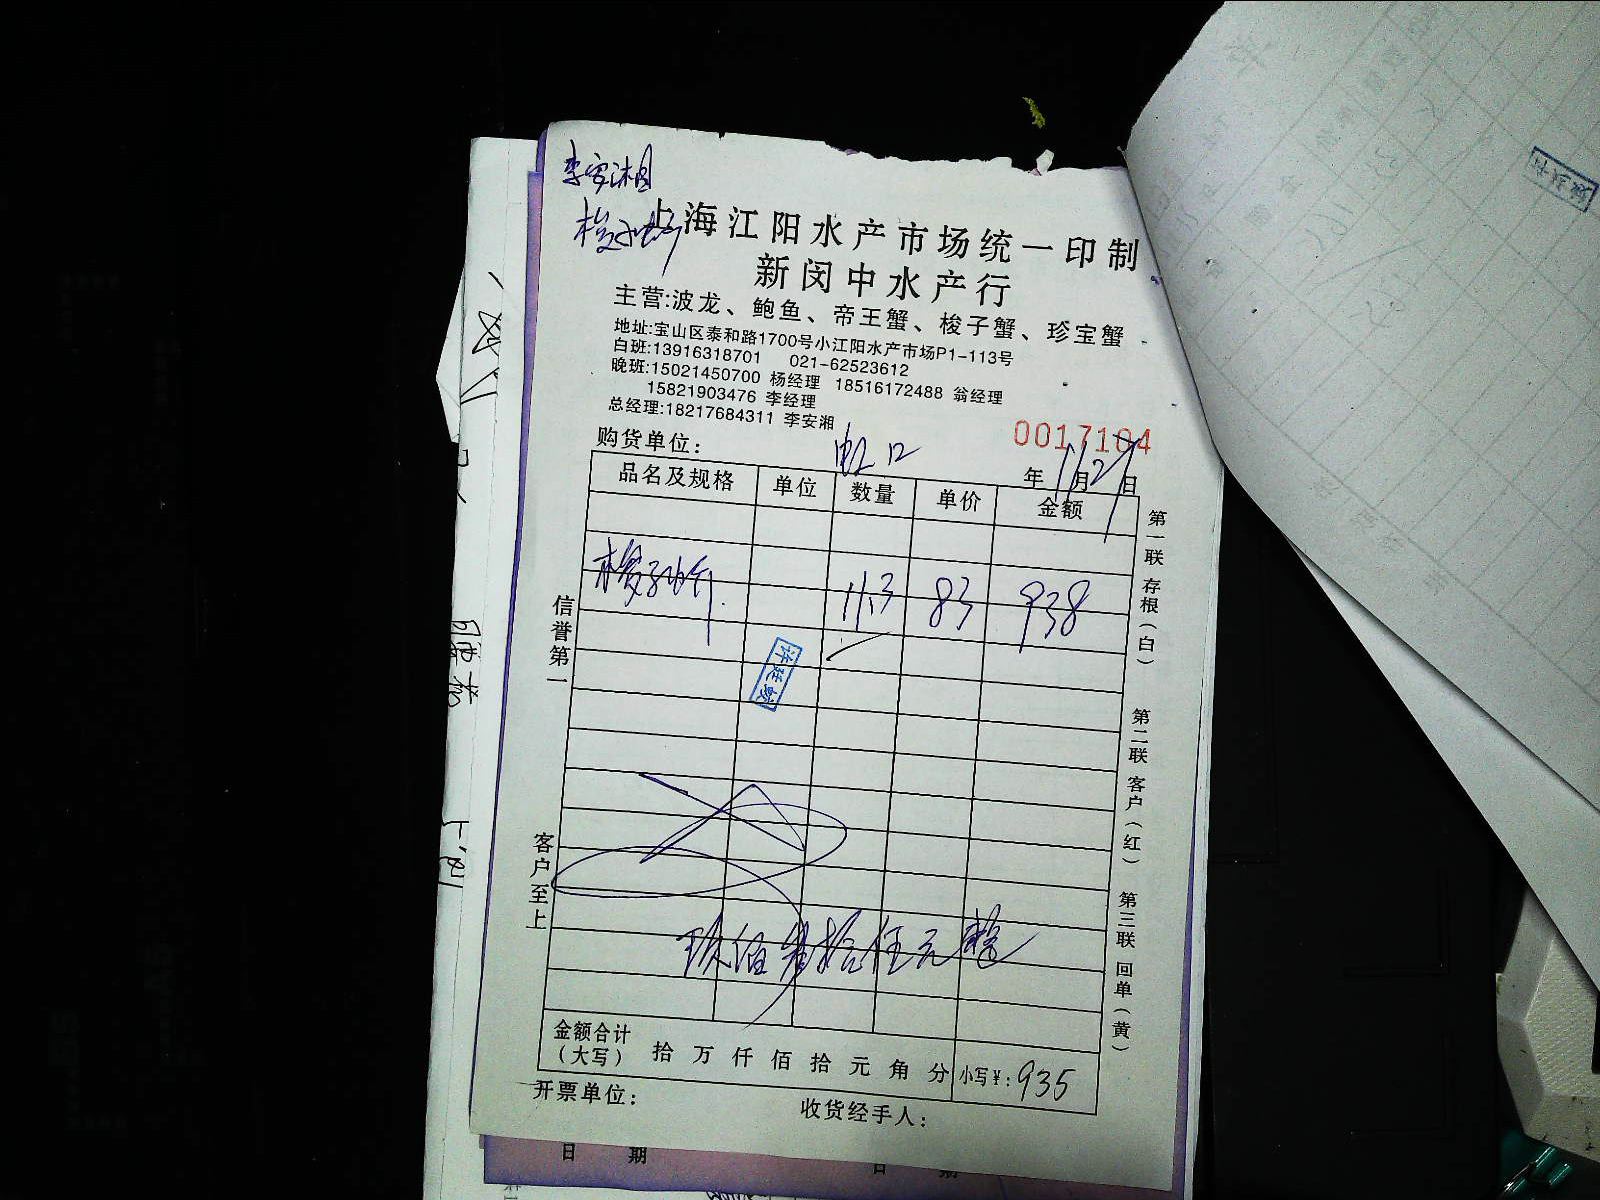 李安湘
梭子蟹
上海江阳水产市场统一印制
新闵中水产行
主营:波龙、鲍鱼、帝王蟹、梭子蟹、珍宝蟹
地址:宝山区泰和路1700号小江阳水产市场P1-113号
白班:13916318701 021-62523612
晚班:15021450700 杨经理 18516172488 翁经理
15821903476 李经理
总经理:18217684311 李安湘
0017104
购货单位: 虹口 年11月27日
品名及规格 单位 数量 单价 金额
梭子蟹 11.3 83 938
信誉第一
客户至上
第一联 存根(白)
第二联 客户(红)
第三联 回单(黄)
玖佰叁拾伍元整
金额合计
(大写) 拾万仟佰拾元角分 小写¥:935
开票单位: 收货经手人:
日 期 日 期